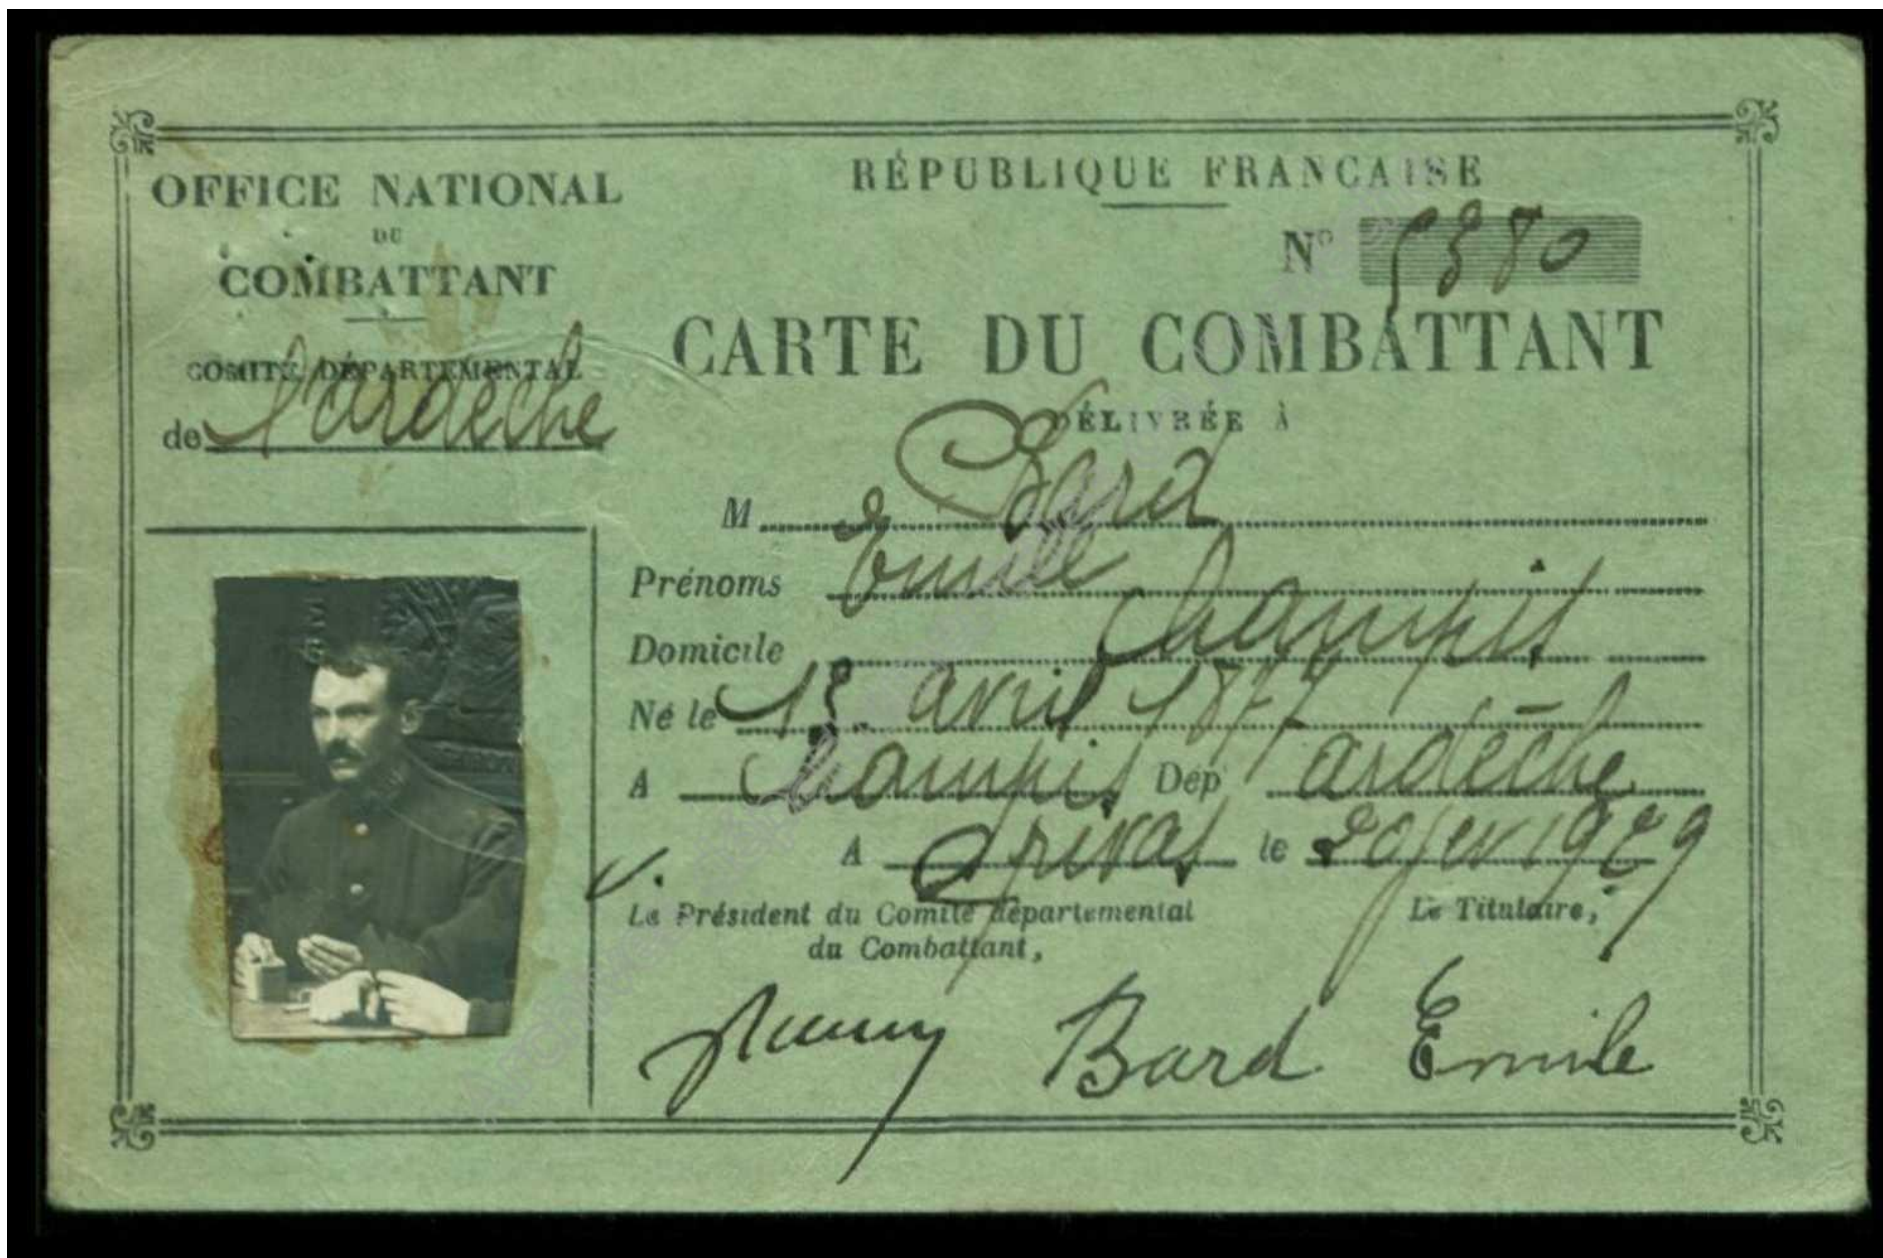 OFFICE NATIONAL
DU
COMBATTANT
COMITÉ DÉPARTEMENTAL
de l'ardèche
RÉPUBLIQUE FRANÇAISE
N°
CARTE DU COMBATTANT
DÉLIVRÉE À
M Bard
Prénoms Emile
Domicile Champis
Né le 13 avril 1877
A Champis Dép ardèche
A Privas le 20 1929
Le Président du Comité départemental
du Combattant,
Le Titulaire,
Bard Emile